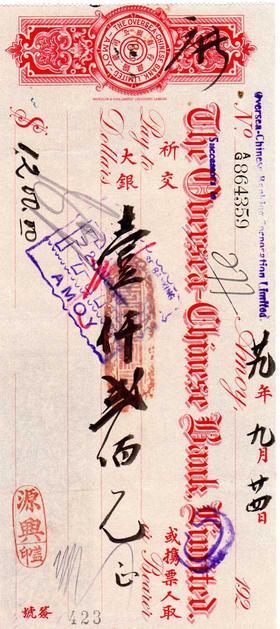 Oversea-Chinese Banking Corporation Limited
Successors to
THE OVERSEA CHINESE BANK, LIMITED
AMOY
Nº A/G 864359
The Oversea-Chinese Bank, Limited,
Amoy, 192
廿年九月廿四日
祈交
或攜票人取
Pay to
or Bearer
大銀
Dollars
壹仟弍佰元正
$1200.00
AMOY
源興
蓋印
簽號
423